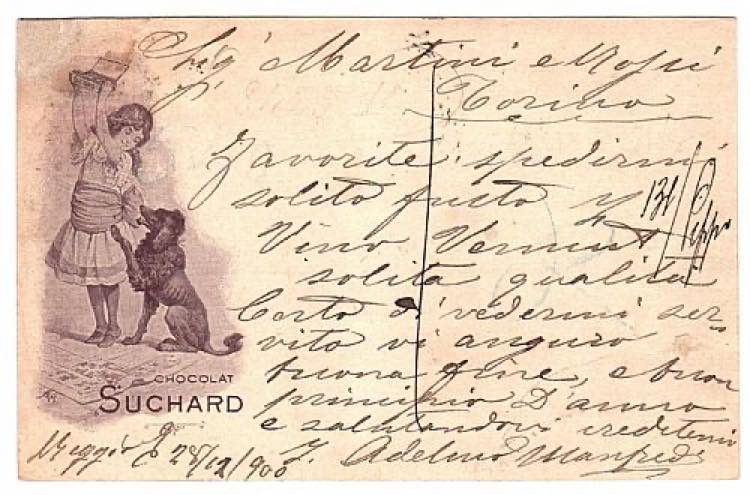 Sig.ri Martini e Rossi
Torino
Favorite spedirmi
solito fusto
Vino Vermut
solita qualità
Certo di vedermi ser
vito vi auguro
buona fine, e buon
principio D'anno
e salutandovi credetemi
Adelmo Manfredi
Reggio E 28/12/900
CHOCOLAT
SUCHARD